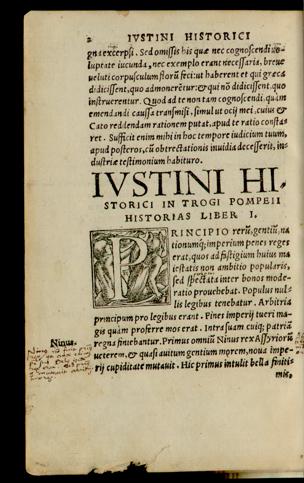 2 IVSTINI HISTORICI
gna excerpsi. Sed omissis his quæ nec cognoscendi uo-
luptate iucunda, nec exemplo erant necessaria, breue
ueluti corpusculum florũ feci: ut haberent et qui græca
didicissent, quo admonerẽtur: & qui nõ didicissent, quo
instruerentur. Quod ad te non tam cognoscendi, quàm
emendandi caussa transmisi, simul ut ocij mei, cuius &
Cato reddendam rationem putat, apud te ratio consta-
ret. Sufficit enim mihi in hoc tempore iudicium tuum,
apud posteros, cũ obtrectationis inuidia decesserit, in-
dustriæ testimonium habituro.
IVSTINI HI,
STORICI IN TROGI POMPEII
HISTORIAS LIBER I.
PRINCIPIO rerũ, gentiũ, na
tionumq; imperium penes reges
erat, quos ad fistigium huius ma
iestatis non ambitio popularis,
sed spectata inter bonos mode-
ratio prouehebat. Populus nul-
lis legibus tenebatur. Arbitria
principum pro legibus erant. Fines imperij tueri ma-
gis quàm proferre mos erat. Intra suam cuiq; patriã
Ninus. regna finebantur. Primus omniũ Ninus rex Assyriorũ
ueterem, & quasi auitum gentium morem, noua impe-
rij cupiditate mutauit. Hic primus intulit bella finiti-
mis,